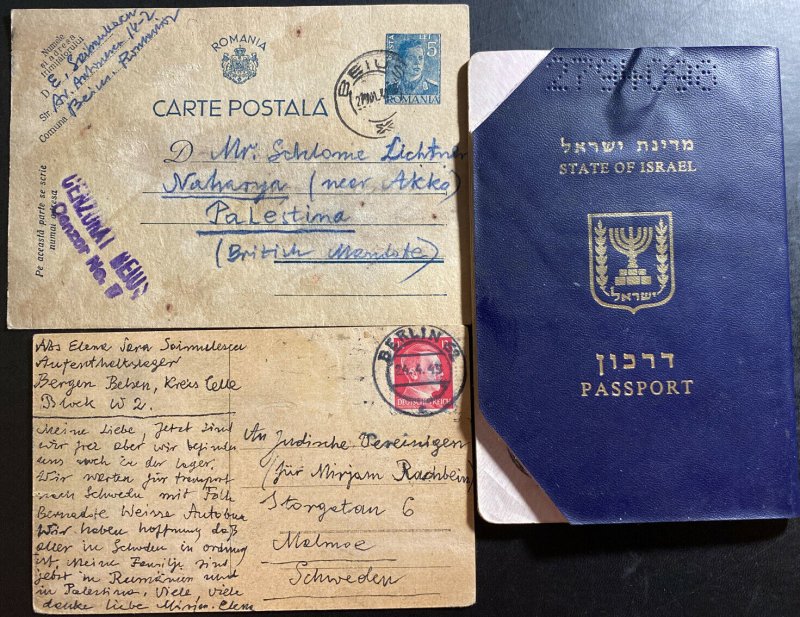 Numele
și adresa
trimițătorului
D E. Saimulescu
Str. Av. Antonescu 14-2
Comuna Beiuș. Romania
ROMANIA
CARTE POSTALĂ
POSTA LEI
5
ROMANIA
BEIUȘ
D Mr. Schlome Lichtner
Naharya (neer Akka)
Palestina
(British Mandate)
Pe această parte se scrie
numai adresa
CENZURAT BEIUȘ
Cenzor No.
Abs Elena Sara Saimulescu
Aufenthaltslager
Bergen Belsen, Kreis Celle
Block W 2.
BERLIN
24.4.45
DEUTSCHES REICH
Meine Liebe, Jetzt sind
wir frei aber wir befinden
uns noch in der Lager.
Wir warten für transport
nach Schweden mit Folke
Bernadote Weisse Autobus
Wir haben hoffnung daß
alles in Schweden in ordnung
ist, Meine Familje sind
jetzt in Rumänien und
in Palestina. Viele, Viele
danke liebe Mirjam. Elena
An Judische Vereinigen
(für Mirjam Rachbein)
Storgatan 6
Malmoe
Schweden
2794098
מדינת ישראל
STATE OF ISRAEL
ישראל
דרכון
PASSPORT